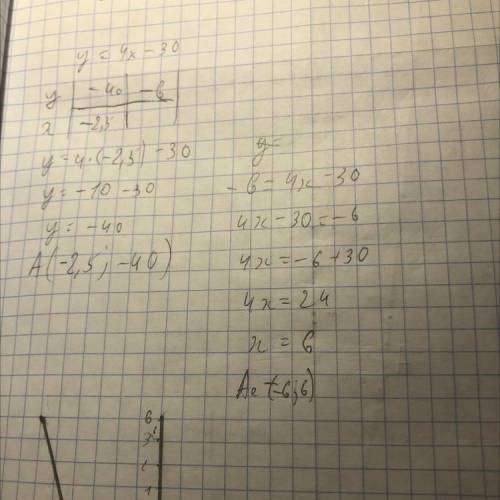 y = 4x - 30
y | -40 | -6
x | -2,5 |
y = 4·(-2,5) - 30
y = -10 - 30
y = -40
A(-2,5; -40)
y =
-6 = 4x - 30
4x - 30 = -6
4x = -6 + 30
4x = 24
x = 6
(-6; 6)
6
3
1